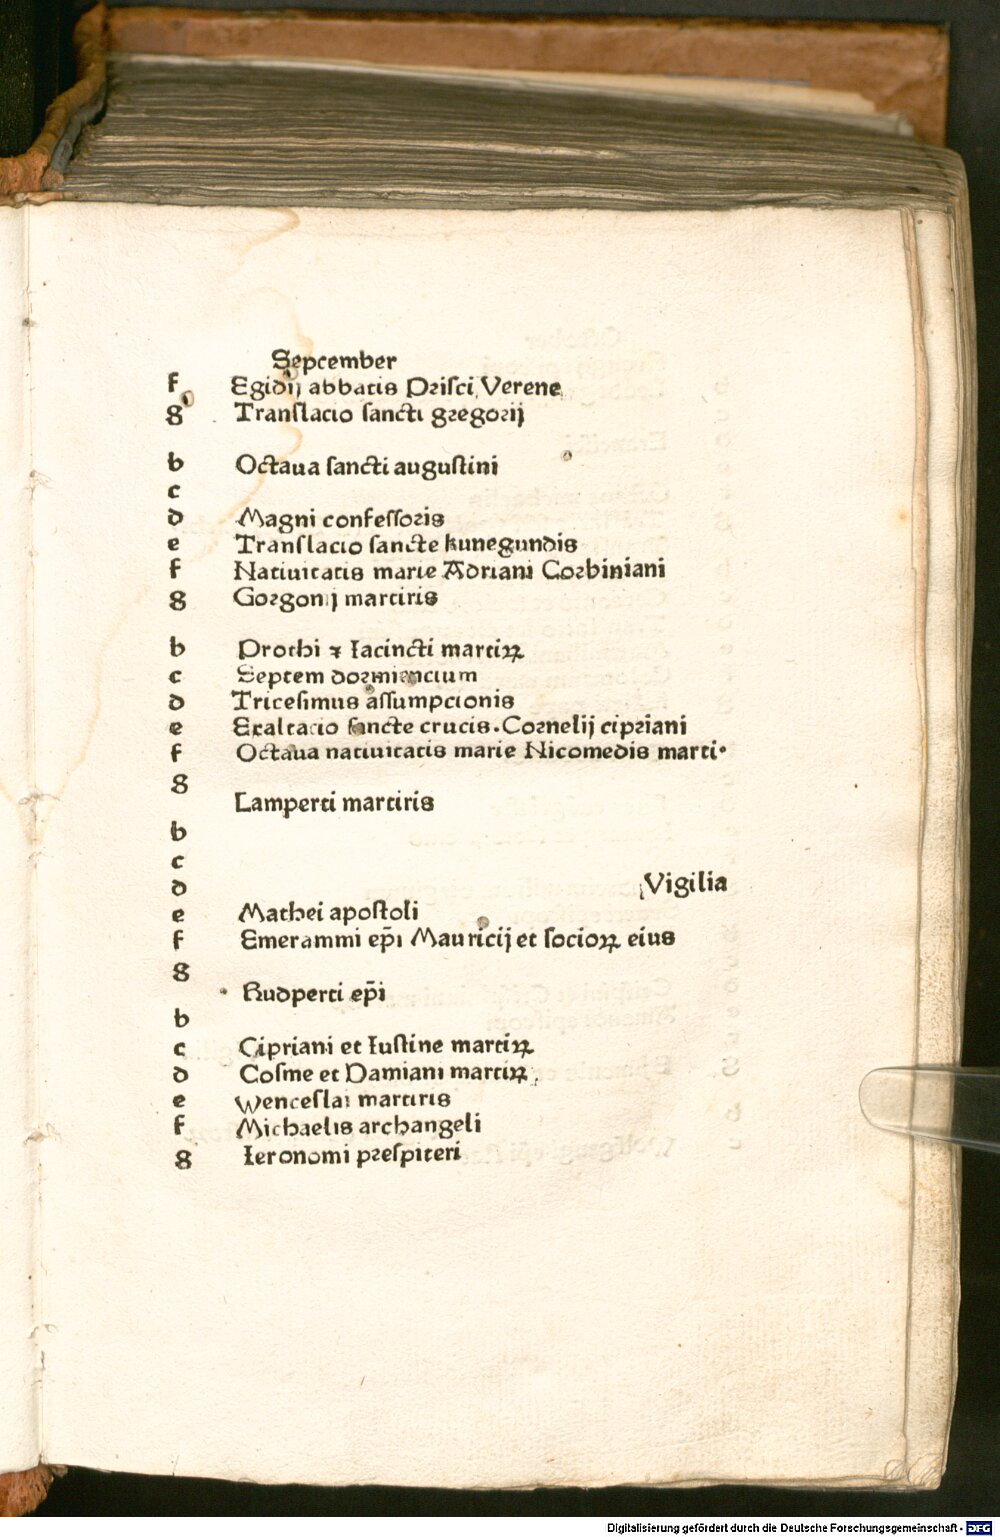 September
f Egidij abbatis Prisci Verene
g Translacio sancti gregorij
b Octaua sancti augustini
c
d Magni confessoris
e Translacio sancte kunegundis
f Natiuitatis marie Adriani Corbiniani
g Gorgonij martiris
b Prothi ⁊ Iacincti martiꝝ
c Septem dormiencium
d Tricesimus assumpcionis
e Exaltacio sancte crucis. Cornelij cipriani
f Octaua natiuitatis marie Nicomedis marti.
g
Lamperti martiris
b
c
d Vigilia
e Mathei apostoli
f Emerammi ep̄i Mauricij et socioꝝ eius
g
Rudperti ep̄i
b
c Cipriani et Iustine martiꝝ
d Cosme et Damiani martiꝝ
e Wenceslai martiris
f Michaelis archangeli
g Ieronomi prespiteri
Digitalisierung gefördert durch die Deutsche Forschungsgemeinschaft - DFG